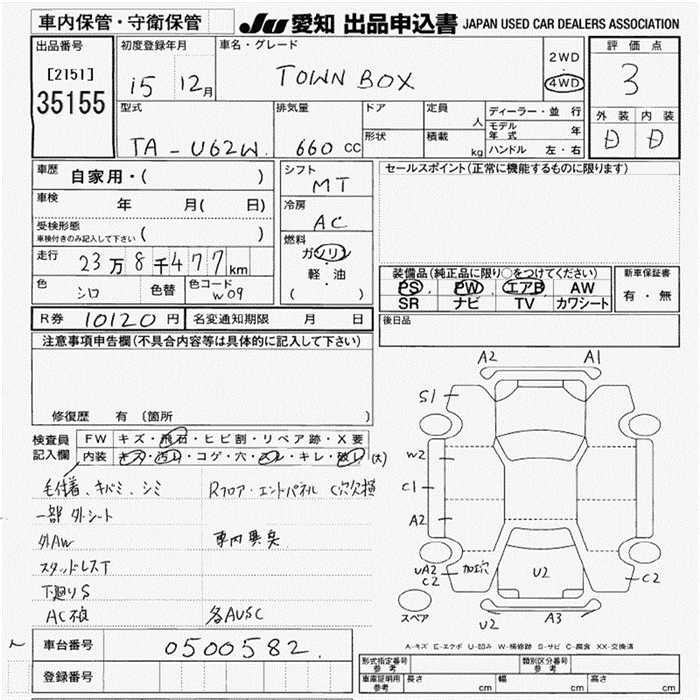 車内保管・守衛保管
JU 愛知 出品申込書 JAPAN USED CAR DEALERS ASSOCIATION
出品番号
[2151]
35155
初度登録年月
15 12月
車名・グレード
TOWN BOX
2WD
・
4WD
評価点
3
外装 内装
D D
型式
TA-U62W
排気量
660 cc
ドア
形状
定員 人
積載 kg
ディーラー・並行
モデル年式 年
ハンドル 左・右
車歴
自家用・( )
車検
年 月( 日)
受検形態
車検付きのみ記入して下さい ( )
走行
23万8千477km
色
シロ
色替
色コード
W09
シフト
MT
冷房
AC
燃料
ガソリン
・
軽・油
( )
セールスポイント(正常に機能するものに限ります)
装備品(純正品に限り○をつけてください)
PS PW エアB AW
SR ナビ TV カワシート
新車保証書
有・無
R券 10120 円
名変通知期限 月 日
後日品
注意事項申告欄(不具合内容等は具体的に記入して下さい)
修復歴 有 〔箇所 〕
検査員記入欄
FW キズ・飛石・ヒビ割・リペア跡・X要
内装 キズ・汚れ・コゲ・穴・スレ・キレ・破れ (大)
毛付着、キバミ、シミ
Rフロア・エンドパネル C穴欠損
一部外シート
外AW
車内異臭
スタッドレスT
下廻りS
AC不良
各AUSC
車台番号
0500582
登録番号
A2 A1
S1
W2
C1
A2
UA2
C2
加工穴
U2
C2
スペア
U2
A3
A-キズ E-エクボ U-凹み W-補修跡 S-サビ C-腐食 XX-交換済
形式指定番号 参考
類別区分番号 参考
車庫証明用 参考
長さ cm 幅 cm 高さ cm